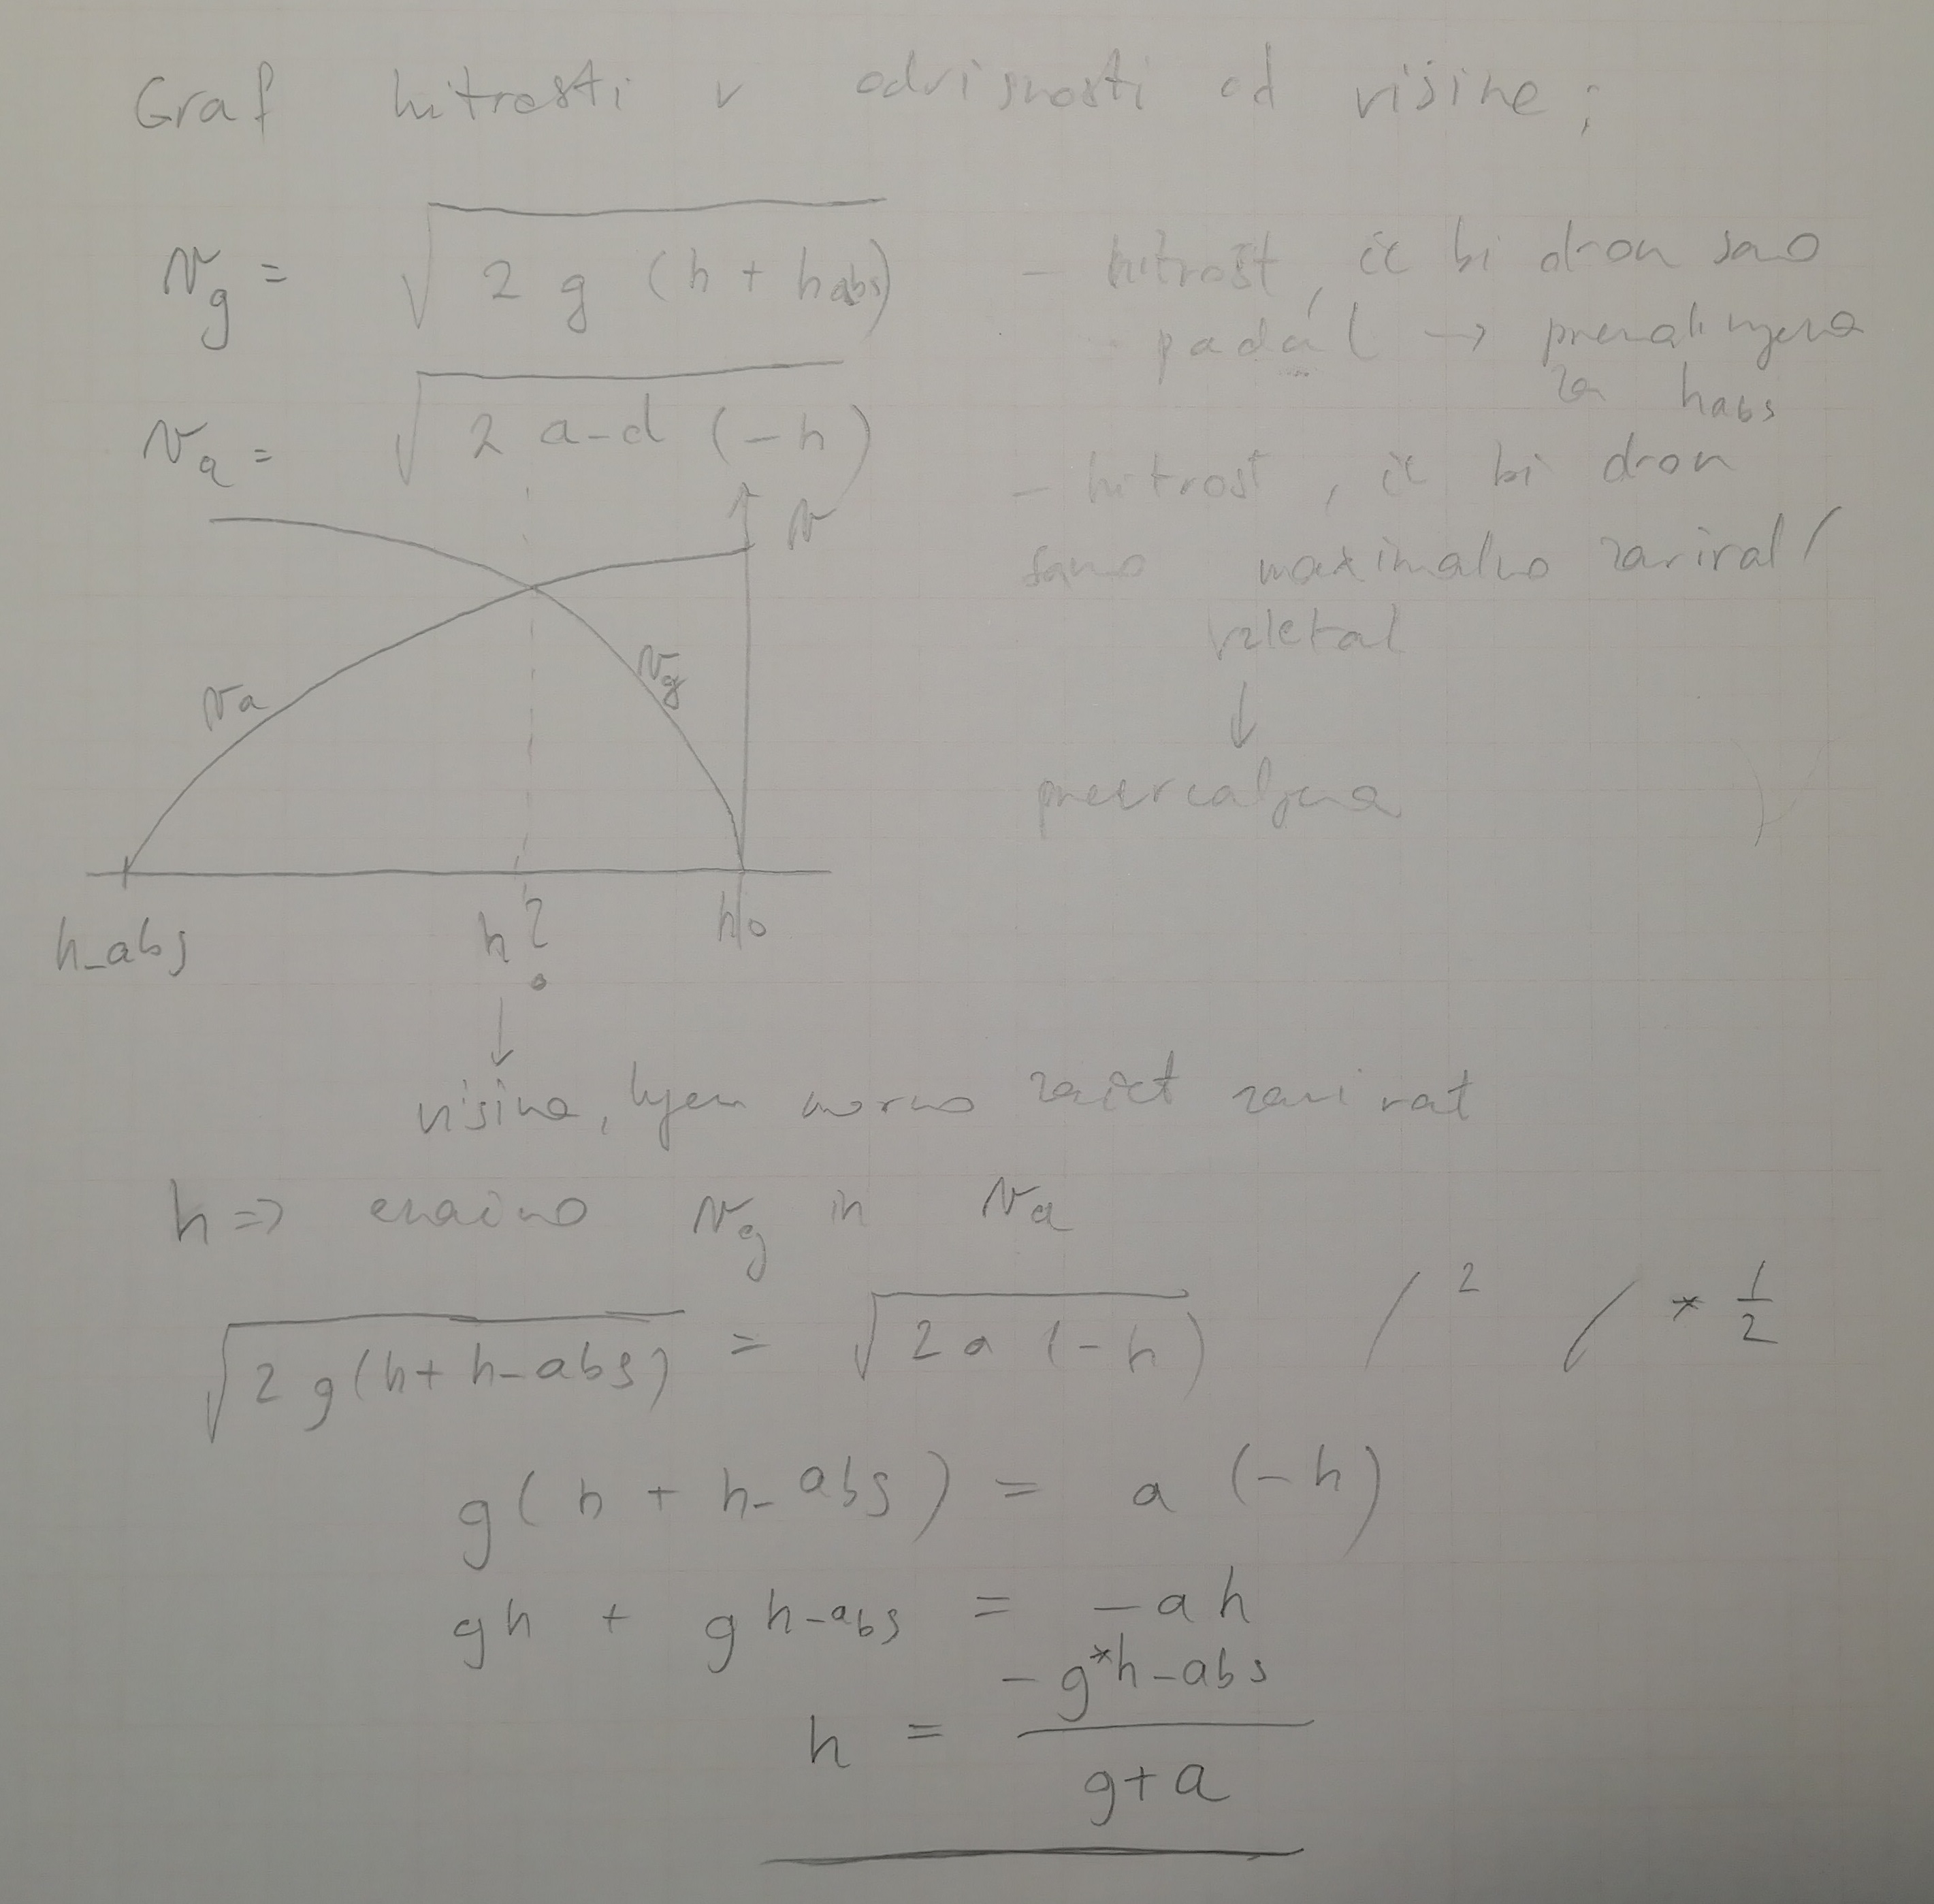 Graf hitrosti v odvisnosti od višine:
v_g = √(2 g (h + habs)) - hitrost, če bi dron samo
padal → premaknjena
za habs
v_a = √(2 a_d (-h)) - hitrost, če bi dron
samo maximalno zaviral /
vzletal
↓
prezrcaljena
v
v_a
v_g
h_abs h? h/0
↓
višina, kjer mormo začet zavirat
h => enačimo v_g in v_a
√(2 g (h + h_abs)) = √(2 a (-h)) /² / * 1/2
g (h + h_abs) = a (-h)
gh + g h_abs = -a h
h = (-g*h_abs)/(g+a)